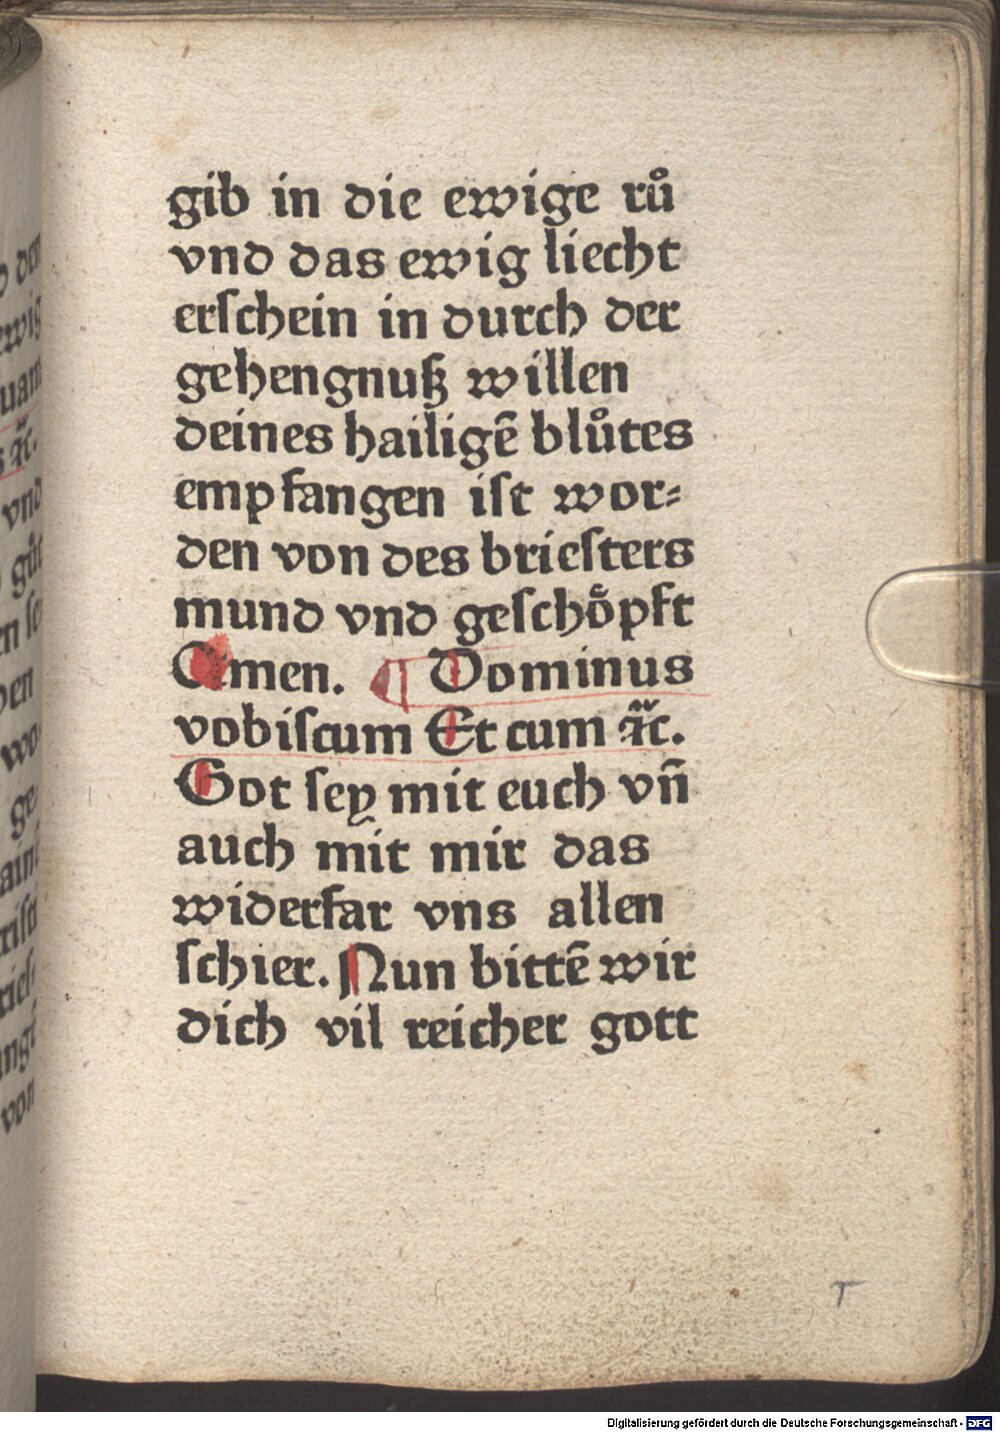 gib in die ewige rů
vnd das ewig liecht
erſchein in durch der
gehengnuß willen
deines hailigē blůtes
empfangen iſt wor⸗
den von des brieſters
mund vnd geſchoͤpft
Amen. ¶ Dominus
vobiſcum Et cum ꝛc̃.
Got ſey mit euch vn̄
auch mit mir das
widerfar vns allen
ſchier. Nun bittē wir
dich vil reicher gott
T
Digitalisierung gefördert durch die Deutsche Forschungsgemeinschaft - DFG